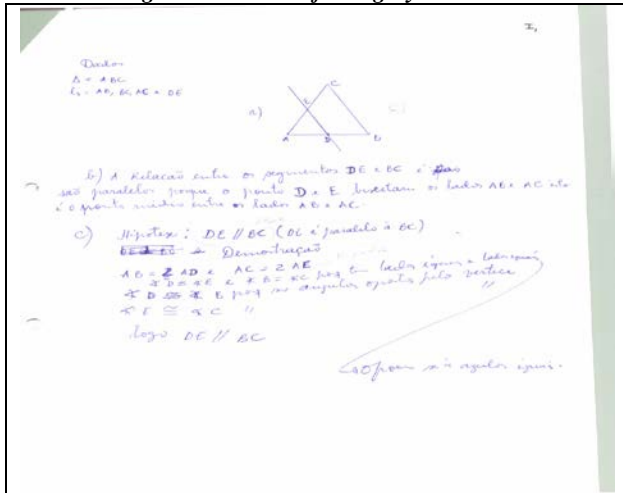 I,
Dados
Δ = ABC
AB, BC, AC e DE
a)
C
E
A D B
b) A Relacão entre os segmentos DE e BC é
são paralelos porque o ponto D e E bissetam os lados AB e AC isto
é o ponto médio entre os lados AB e AC.
c) Hipotese: DE // BC (DE é paralelo à BC)
Demostração
AB = 2 AD e AC = 2 AE
∢ D ≅ ∢ E e ∢ B = ∢ C porq tem lados iguais e lados iguais
∢ D ≅ ∢ B porq são angulos opostos pelo vertice
∢ E ≅ ∢ C "
"
logo DE // BC
opoem se à angulos iguais.